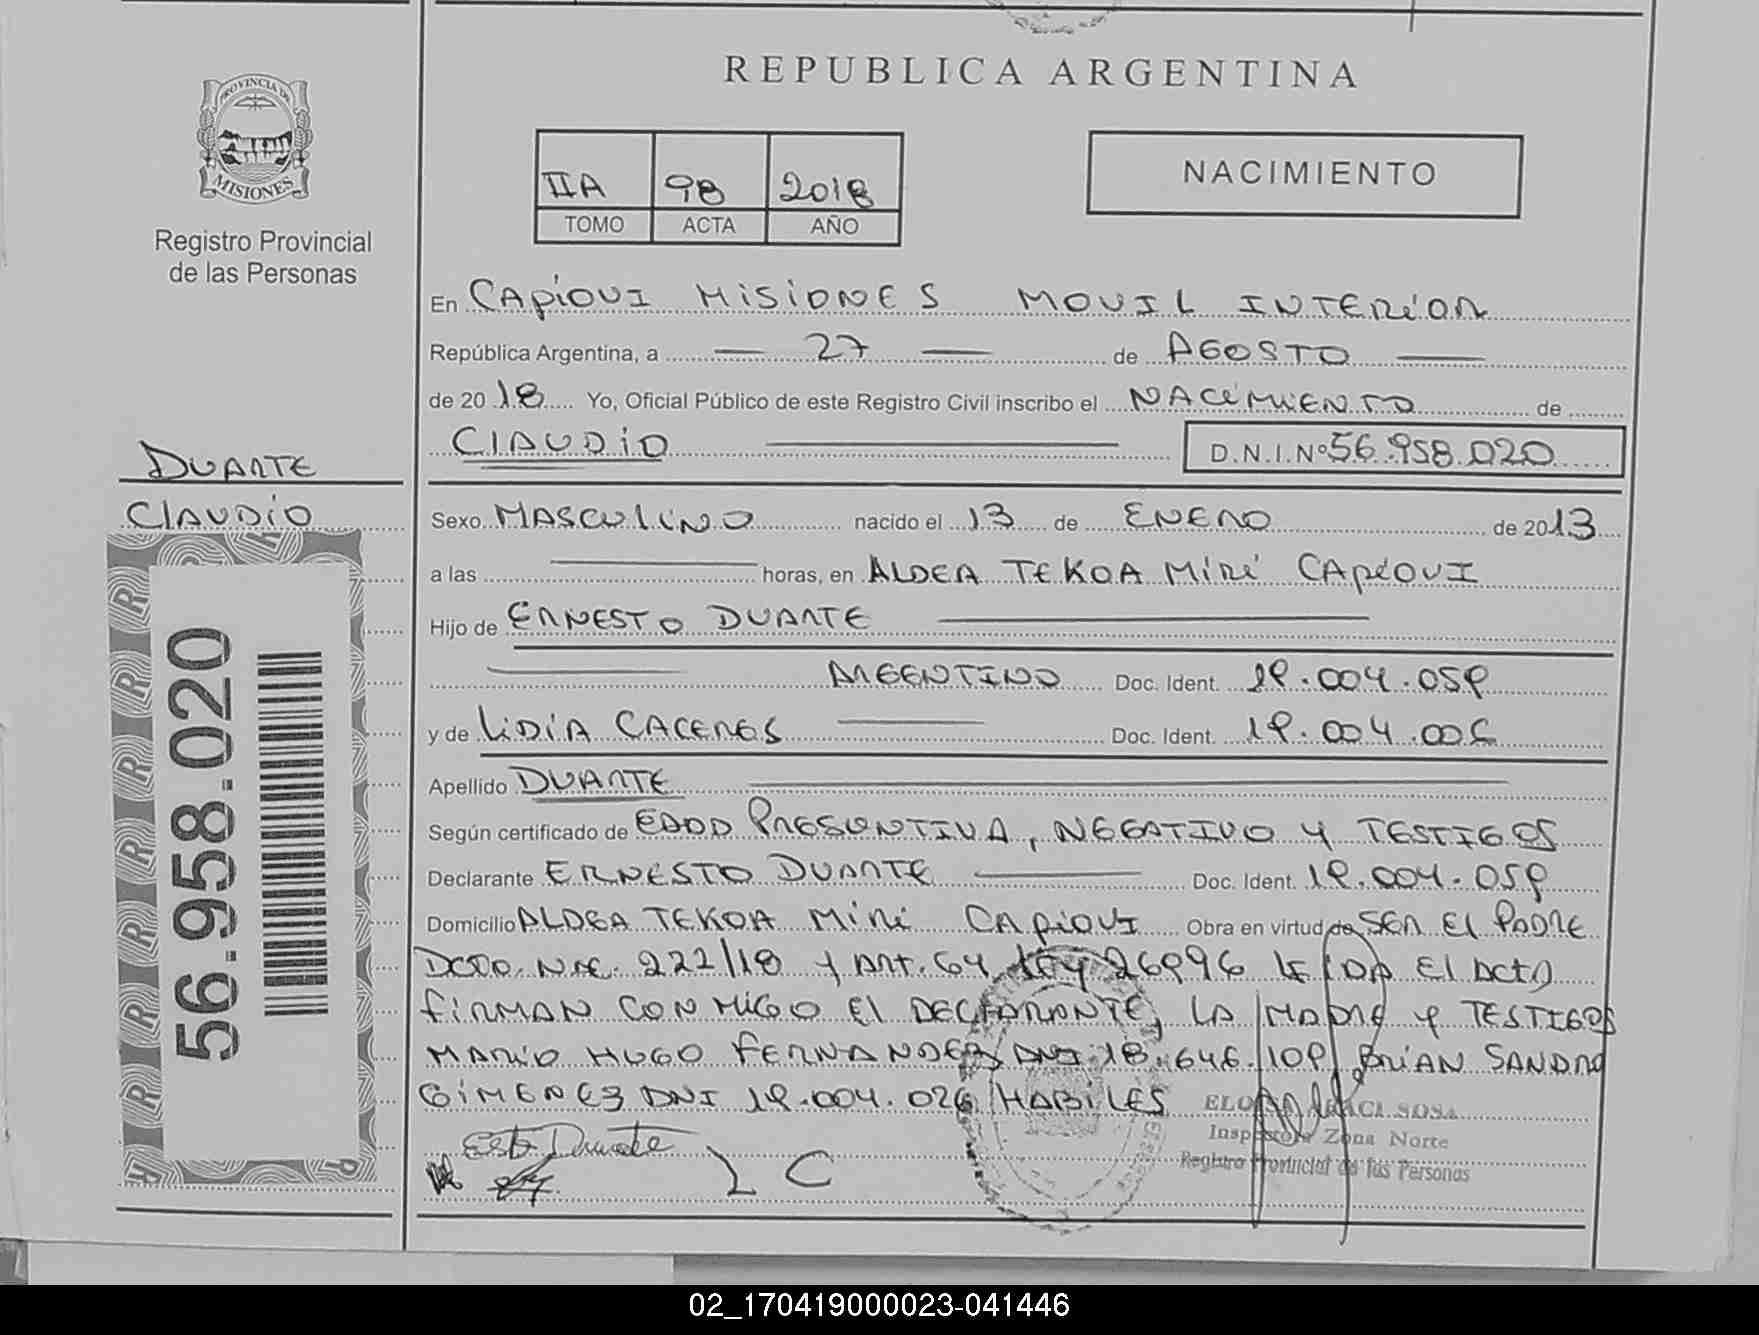 PROVINCIA DE
MISIONES
Registro Provincial
de las Personas
DUARTE
CLAUDIO
56.958.020
REPUBLICA ARGENTINA
IIA 98 2018
TOMO ACTA AÑO
NACIMIENTO
En CAPIOVI MISIONES MOVIL INTERIOR
República Argentina, a 27 de AGOSTO
de 2018 Yo, Oficial Público de este Registro Civil inscribo el NACIMIENTO de
CLAUDIO D.N.I.Nº 56.958.020
Sexo MASCULINO nacido el 13 de ENERO de 2013
a las horas, en ALDEA TEKOA MIRI CAPIOVI
Hijo de ERNESTO DUARTE
ARGENTINO Doc. Ident. 19.004.059
y de LIDIA CACERES Doc. Ident. 19.004.006
Apellido DUARTE
Según certificado de EDAD PRESUNTIVA, NEGATIVO Y TESTIGOS
Declarante ERNESTO DUARTE Doc. Ident. 19.004.059
Domicilio ALDEA TEKOA MIRI CAPIOVI Obra en virtud de SER EL PADRE
DCTO. NAC. 222/18 Y ART. 64 LEY 26996 LEIDA EL ACTA
FIRMAN CONMIGO EL DECLARANTE, LA MADRE Y TESTIGOS
MARIO HUGO FERNANDEZ DNI 18.646.109 BRIAN SANDRO
GIMENEZ DNI 19.004.026 HABILES
SOSA
Inspectora Zona Norte
Registro Provincial de las Personas
Duarte
L C
02_170419000023-041446